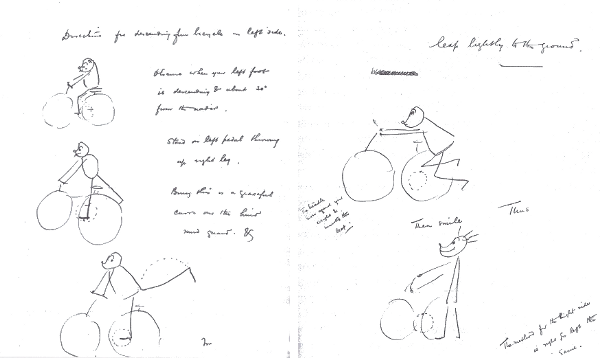 Directions for descending from bicycle on left side.
Observe when your left foot
is descending & about 20°
from the nadir.
Stand on left pedal throwing
up right leg.
Bring this in a graceful
curve over the hind
mud guard. &
leap lightly to the ground.
Then smile
Thus
The method for the Right side
is right for left the
same.